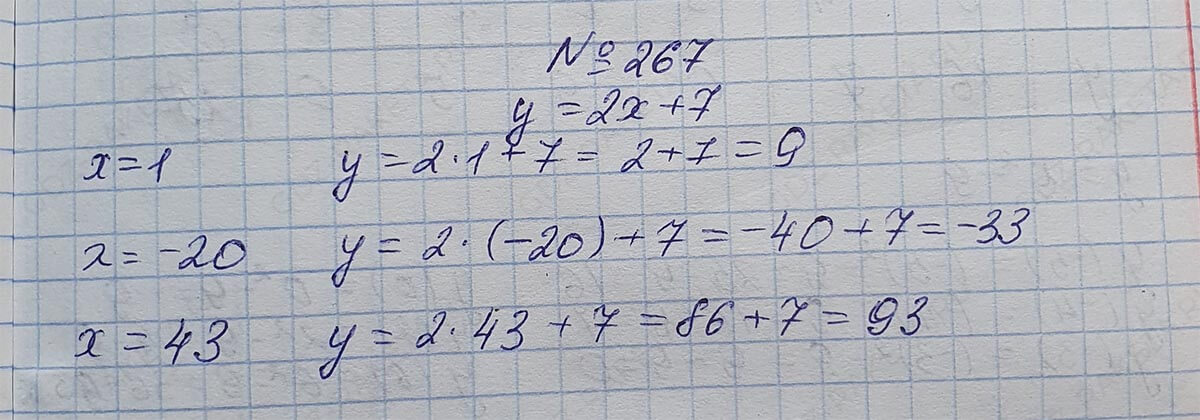 № 267
y = 2x + 7
x = 1 y = 2 · 1 + 7 = 2 + 7 = 9
x = -20 y = 2 · (-20) + 7 = -40 + 7 = -33
x = 43 y = 2 · 43 + 7 = 86 + 7 = 93